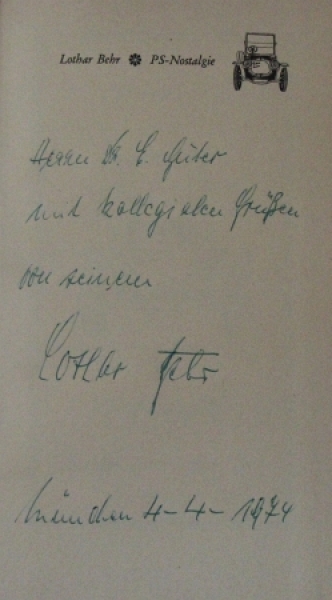 Lothar Behr ✽ PS-Nostalgie
Herrn Dr. E. Huber
mit kollegialen Grüßen
von seinem
Lothar Behr
München 4-4-1974